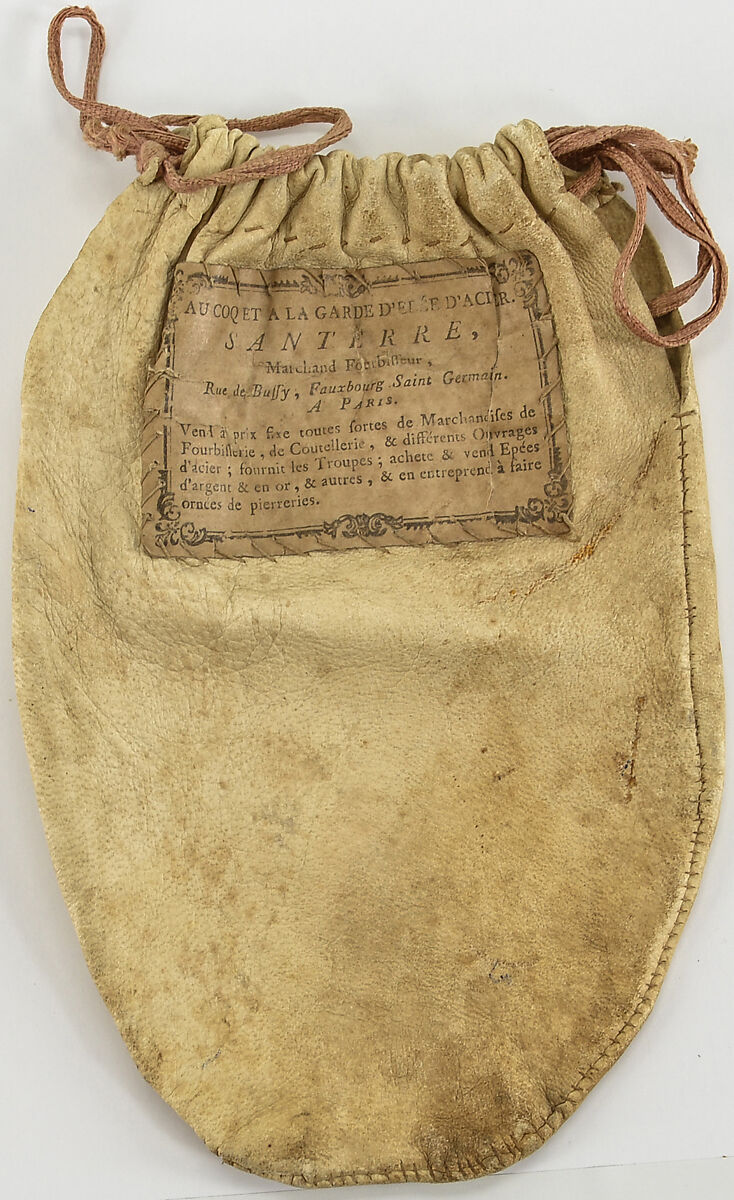 AU COQ ET A LA GARDE D'EPÉE D'ACIER.
SANTERRE,
Marchand Fourbisseur,
Rue de Bussy, Fauxbourg Saint Germain.
A PARIS.
Vend à prix fixe toutes sortes de Marchandises de
Fourbisserie, de Coutellerie, & différents Ouvrages
d'acier; fournit les Troupes; achete & vend Epées
d'argent & en or, & autres, & en entreprend à faire
ornées de pierreries.